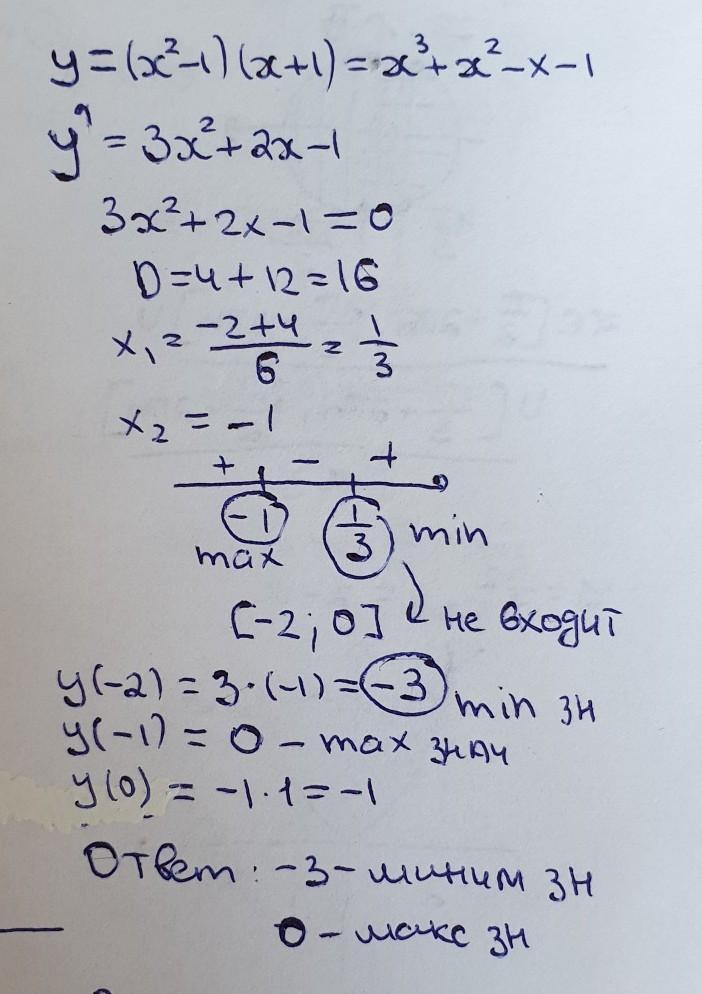 y = (x²-1)(x+1) = x³+x²-x-1
y' = 3x²+2x-1
3x²+2x-1=0
D=4+12=16
x₁ = (-2+4)/6 = 1/3
x₂ = -1
+ - +
-1 1/3 min
max
[-2; 0] не входит
y(-2) = 3·(-1) = -3 min зн
y(-1) = 0 - max знач
y(0) = -1·1 = -1
Ответ: -3 - миним зн
0 - макс зн